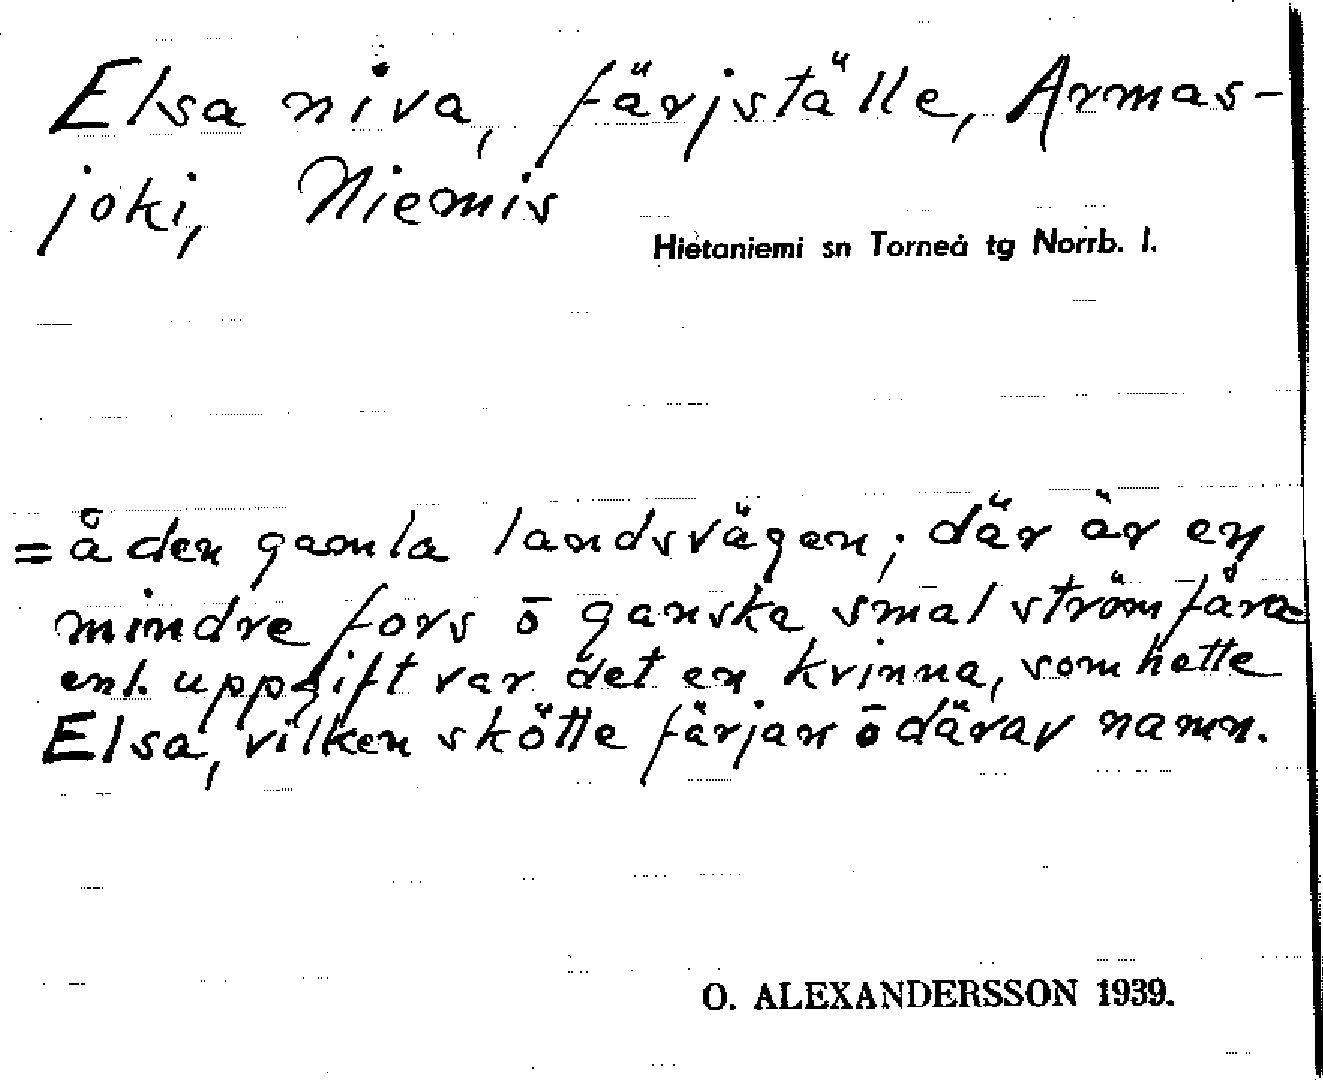 Elsa niva, färjställe, Armas-
joki, Niemis
Hietaniemi sn Torneå tg Norrb. l.
= å den gamla landsvägen; där är en
mindre fors ō ganska smal strömfåra
enl. uppgift var det en kvinna, som hette
Elsa, vilken skötte färjan ō därav namn.
O. ALEXANDERSSON 1939.